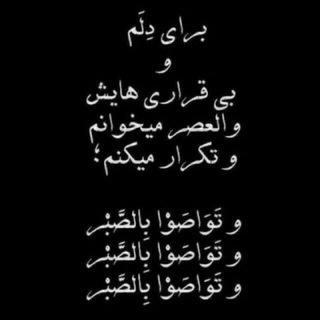 برای دِلَم
و
بی قراری هایش
والعصر میخوانم
و تکرار میکنم؛
و تَوَاصَوْا بِالصَّبْر
و تَوَاصَوْا بِالصَّبْر
و تَوَاصَوْا بِالصَّبْر